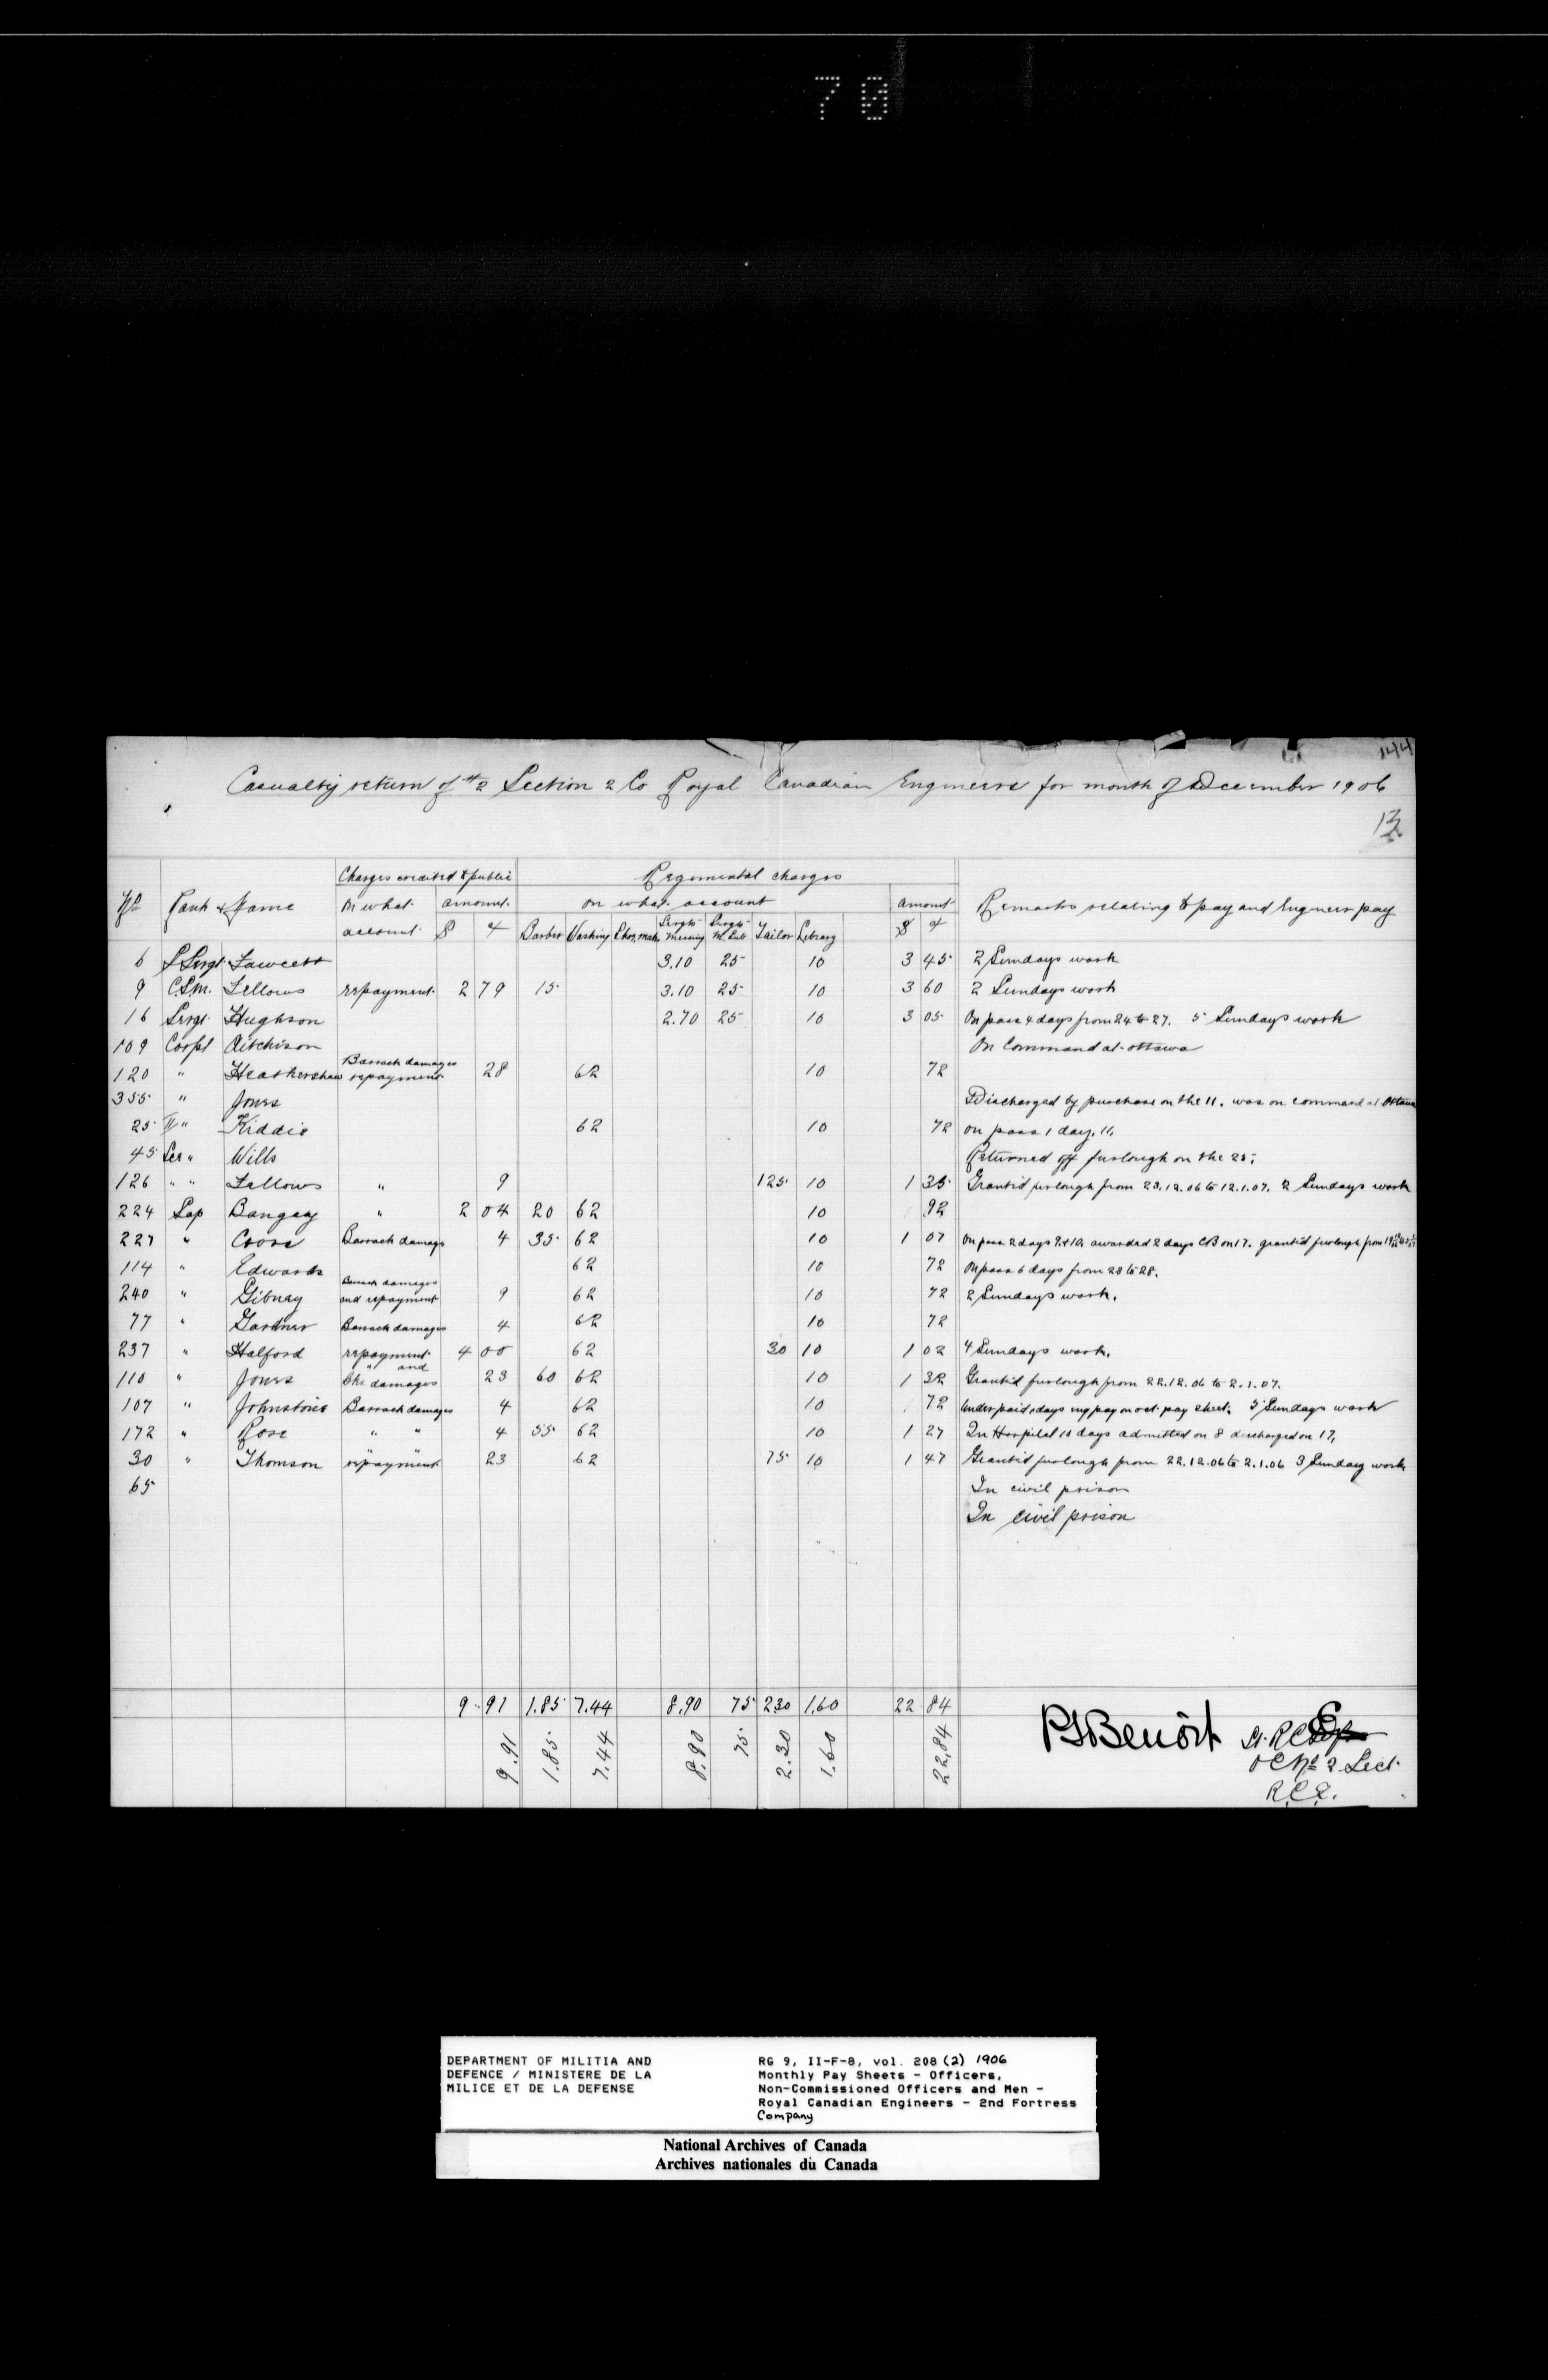 70
144
Casualty return of #2 Section 2 Co Royal Canadian Engineers for month of December 1906
13
No Rank & Name Charges credited to public Regimental charges Remarks relating to pay and Engineer pay
on what account amount on what account amount
$ ¢ Barber Washing Shoemak. Sergts Messing Sergts M. Sub Tailor Library $ ¢
6 S Sergt Fawcett 3.10 25 10 3 45 2 Sundays work
9 C.S.M. Fellows repayment 2 79 15 3.10 25 10 3 60 2 Sundays work
16 Sergt Hughson 2.70 25 10 3 05 On pass 4 days from 24 to 27. 5 Sundays work
109 Corpl Aitchison On Command at Ottawa
120 " Heathershaw Barrack damages repayment 28 62 10 72
355 " Jones Discharged by purchase on the 11. was on command at Ottawa
25 II " Kiddie 62 10 72 on pass 1 day, 11.
45 " Wills Returned off furlough on the 25.
126 " " Fellows " 9 125 10 1 35 Grantid furlough from 23.12.06 to 12.1.07. 2 Sundays work
224 Sap Bangay " 2 04 20 62 10 92
227 " Barrack damage 4 35 62 10 1 07 On pass 2 days 9 & 10, awarded 2 days CB on 17. grantid furlough from
114 " Edwards 62 10 72 On pass 6 days from 23 to 28.
240 " Gibney Barrack damages and repayment 9 62 10 72 2 Sundays work.
77 " Gardner Barrack damages 4 62 10 72
237 " Halford repayment 4 00 62 30 10 1 02 4 Sundays work.
110 " Jones " and damages 23 60 62 10 1 32 Grantid furlough from 22.12.06 to 2.1.07.
107 " Johnstone Barrack damages 4 62 10 72 underpaid days eng pay on oct. pay sheet. 5 Sundays work
172 " Rose " " 4 55 62 10 1 27 In Hospital 10 days admitted on 8 discharged on 17,
30 " Thomson " repayment " 23 62 75 10 1 47 Grantid furlough from 22.12.06 to 2.1.06 3 Sunday work
65 In civil prison
In civil prison
9 91 1.85 7.44 8.90 75 2.30 1.60 22 84
9.91 1.85 7.44 8.90 75 2.30 1.60 22.84
Benoit Lt. RCE
OC No 2 Sect.
R.C.E.
DEPARTMENT OF MILITIA AND
DEFENCE / MINISTERE DE LA
MILICE ET DE LA DEFENSE
RG 9, II-F-8, vol. 208 (2) 1906
Monthly Pay Sheets - Officers,
Non-Commissioned Officers and Men -
Royal Canadian Engineers - 2nd Fortress
Company
National Archives of Canada
Archives nationales du Canada